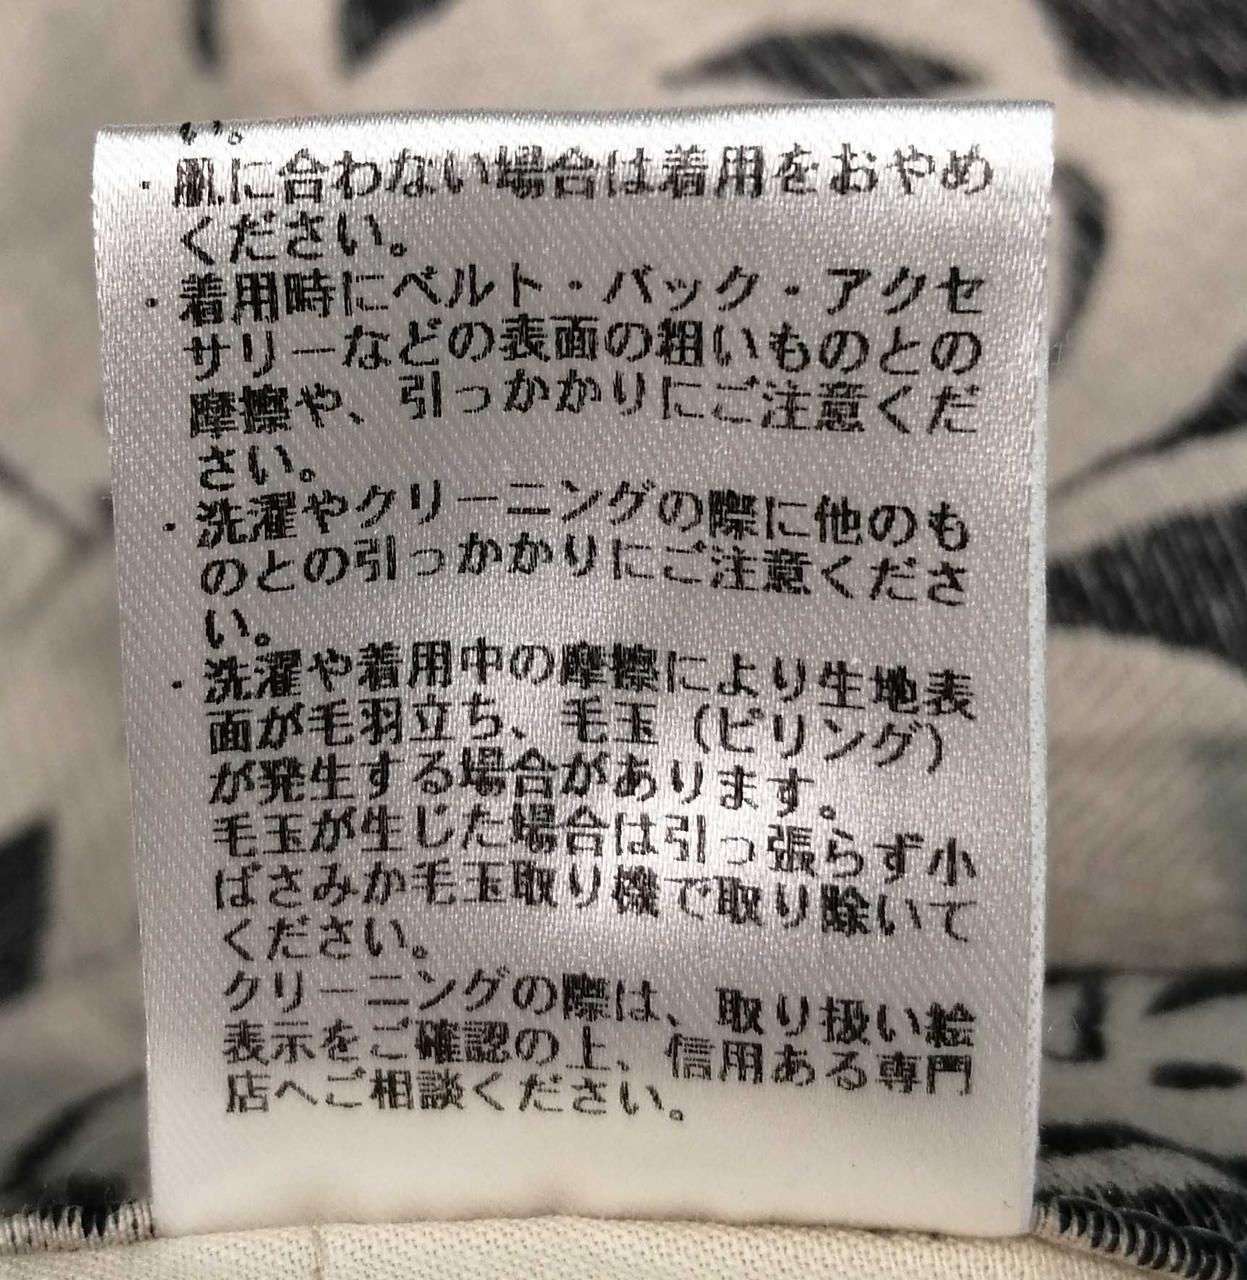 い。
・肌に合わない場合は着用をおやめ
ください。
・着用時にベルト・バック・アクセ
サリーなどの表面の粗いものとの
摩擦や、引っかかりにご注意くだ
さい。
・洗濯やクリーニングの際に他のも
のとの引っかかりにご注意くださ
い。
・洗濯や着用中の摩擦により生地表
面が毛羽立ち、毛玉（ピリング）
が発生する場合があります。
毛玉が生じた場合は引っ張らず小
ばさみか毛玉取り機で取り除いて
ください。
クリーニングの際は、取り扱い絵
表示をご確認の上、信用ある専門
店へご相談ください。